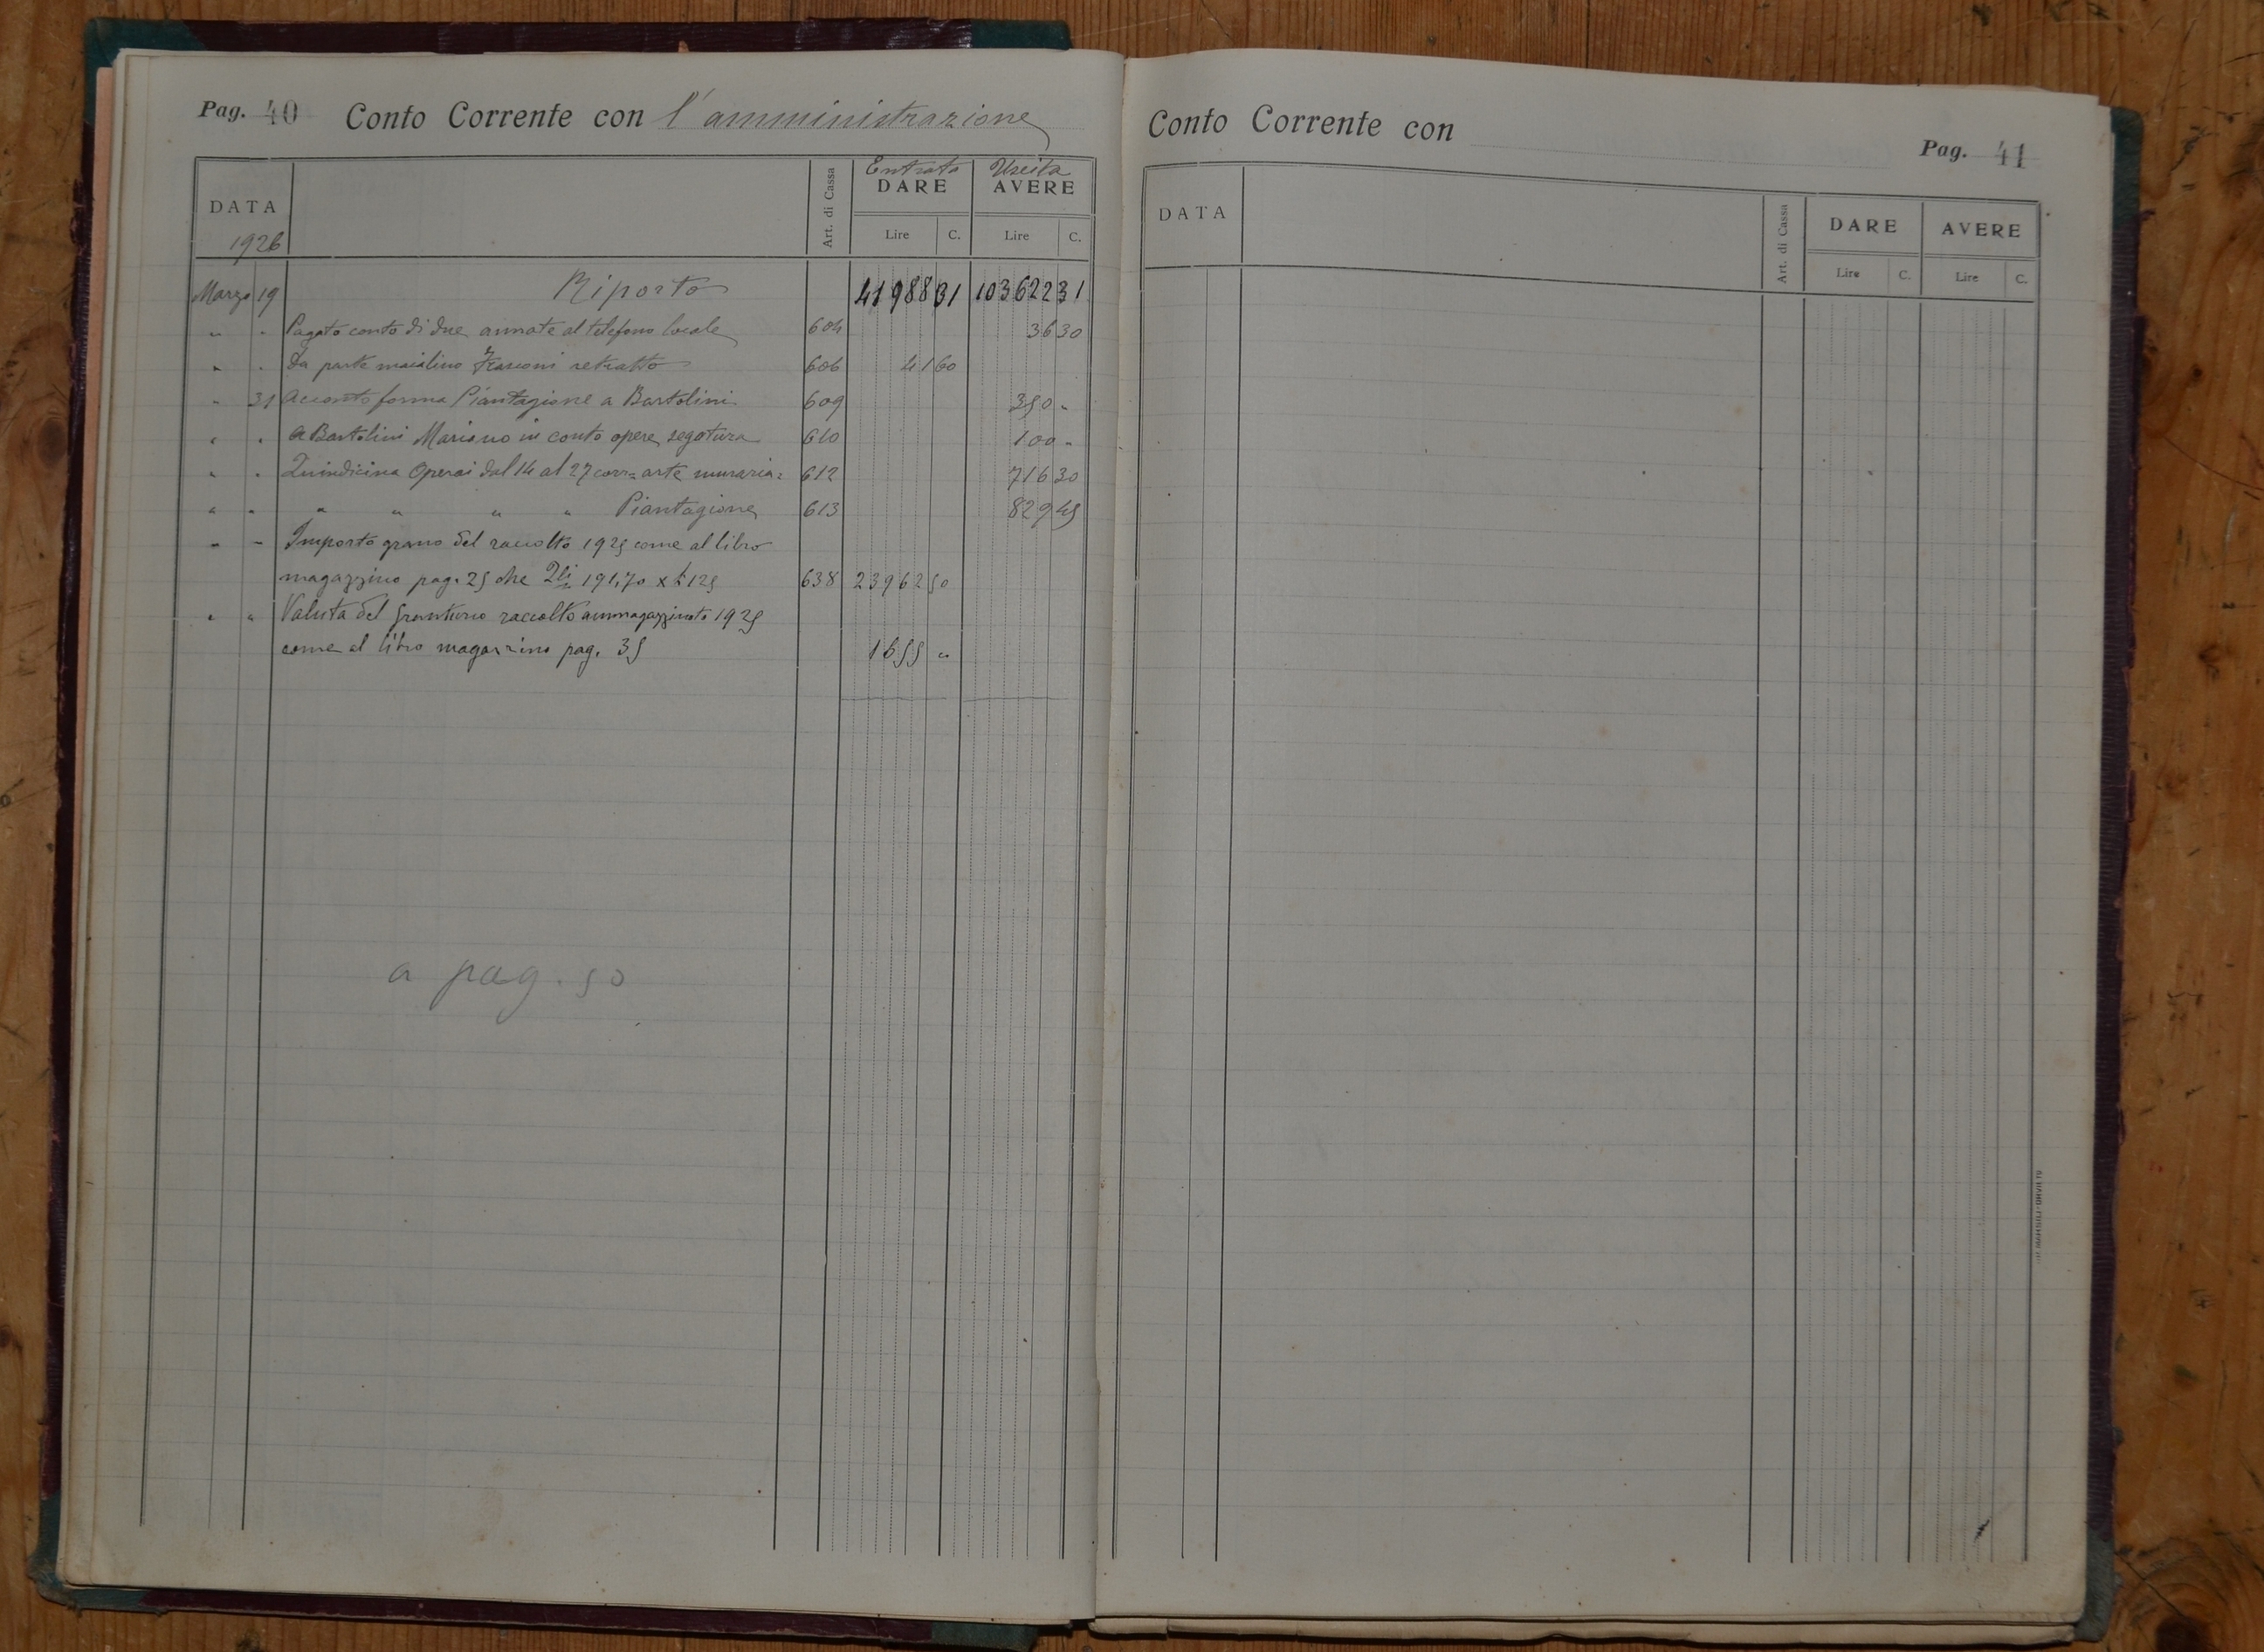 Pag. 40 Conto Corrente con l'amministrazione
DATA 1926 Art. di Cassa Entrata DARE Uscita AVERE
Lire C. Lire C.
Marzo 19 Riporto 41988 31 103622 31
" " Pagato conto di due annate al telefono locale 604 36 30
" " Da parte maialino retratto 606 41 60
" 31 Acconto forma Piantagione a Bartolini 609 350 "
" " A Bartolini Mariano in conto opere segatura 610 100 "
" " Quindicina Operai dal 14 al 27 corr= arte muraria= 612 716 30
" " " " " " Piantagione 613 829 45
" " Importo grano del raccolto 1925 come al libro
magazzino pag. 25 che Qli 191,70 x £ 125 638 23962 50
" " Valuta del granturco raccolto ammagazzinato 1925
come al libro magazzino pag. 35 1655 "
a pag. 50
Conto Corrente con
Pag. 41
DATA Art. di Cassa DARE AVERE
Lire C. Lire C.